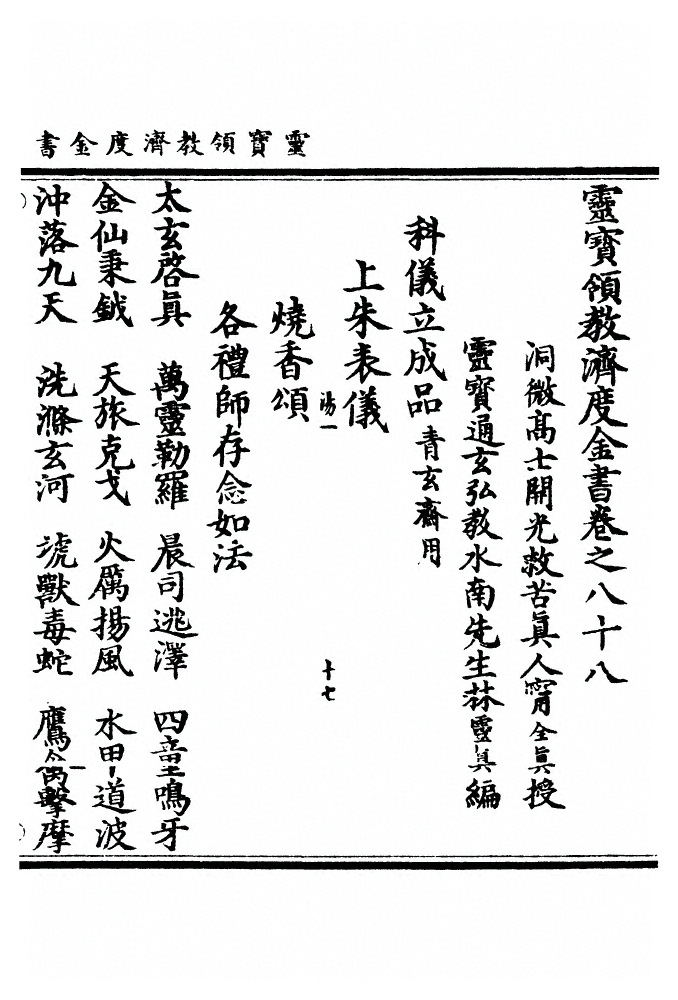 靈寶領教濟度金書
靈寶領教濟度金書卷之八十八
洞微高士開光救苦眞人甯全眞授
靈寶通玄弘教水南先生林靈眞編
科儀立成品 青玄齋用
上朱表儀
湯一
十七
燒香頌
各禮師存念如法
太玄啓眞 萬靈勒羅 晨司逃澤 四童鳴牙
金仙秉鉞 天旅克戈 火厲揚風 水 道波
沖落九天 洗滌玄河 虎獸毒蛇 鷹 擊摩